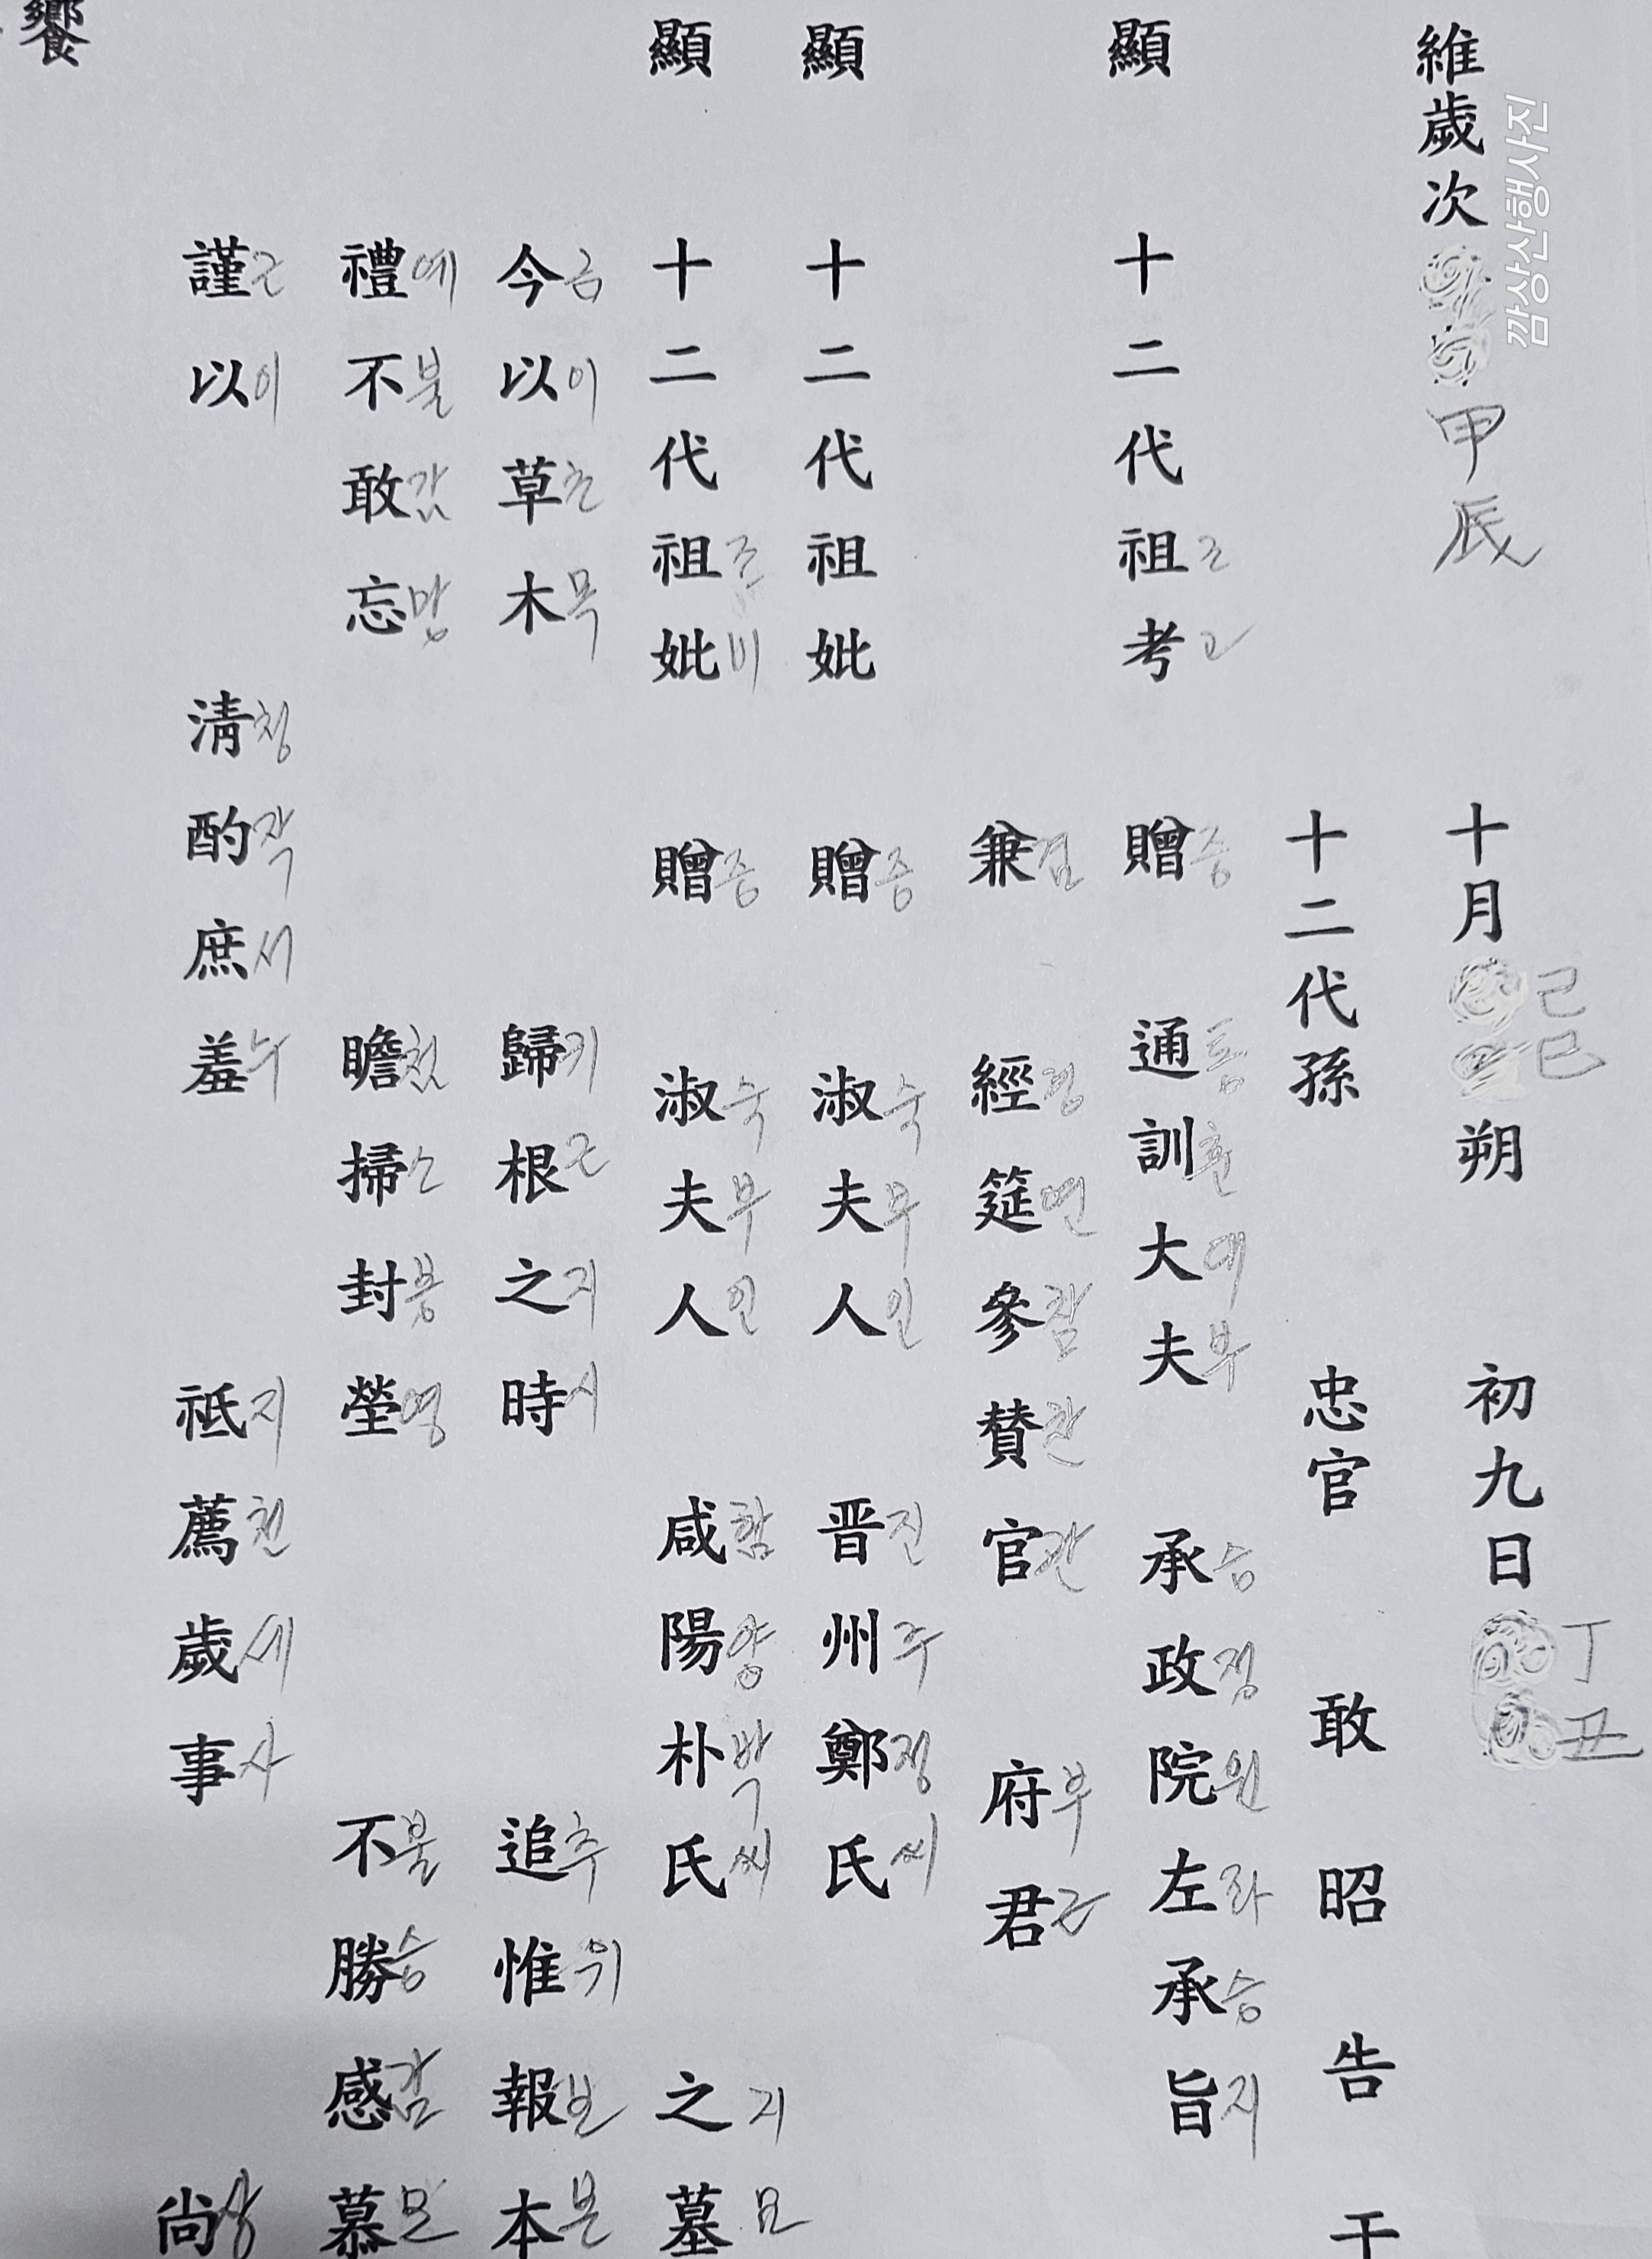 維歲次 甲辰 十月 己巳 朔 初九日 丁丑
十二代孫 忠官 敢 昭 告 于
顯 十二代祖考 贈 通訓大夫 承政院左承旨
조 고 증 통 훈 대 부 승 정 원 좌 승 지
兼 經筵參賛官 府君
겸 경 연 참 찬 관 부 군
顯 十二代祖妣 贈 淑夫人 晋州鄭氏
증 숙 부 인 진 주 정 씨
顯 十二代祖妣 贈 淑夫人 咸陽朴氏 之墓
조 비 증 숙 부 인 함 양 박 씨 지 묘
今以草木 歸根之時 追惟報本
금 이 초 목 귀 근 지 시 추 위 보 본
禮不敢忘 瞻掃封塋 不勝感慕
예 불 감 망 첨 소 봉 영 불 승 감 모
謹以 淸酌庶羞 祗薦歲事 尚
근 이 청 작 서 수 지 천 세 사 상
饗
깜상산행사진